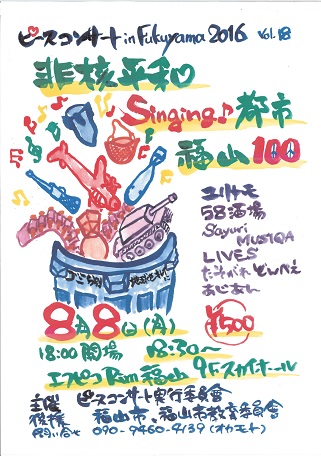 ピースコンサート in Fukuyama 2016 Vol.18
非核平和
Singing♪都市
福山100
ユリサモ
58酒場
Sayuri
MUSIQA
LIVES
たそがれどんべえ
あじあん
¥500
8月8日(月)
18:00開場 18:30〜
エフピコRim福山 9Fスカイホール
主催 ピースコンサート実行委員会
後援 福山市、福山市教育委員会
問い合せ 090-9460-4139(オカモト)